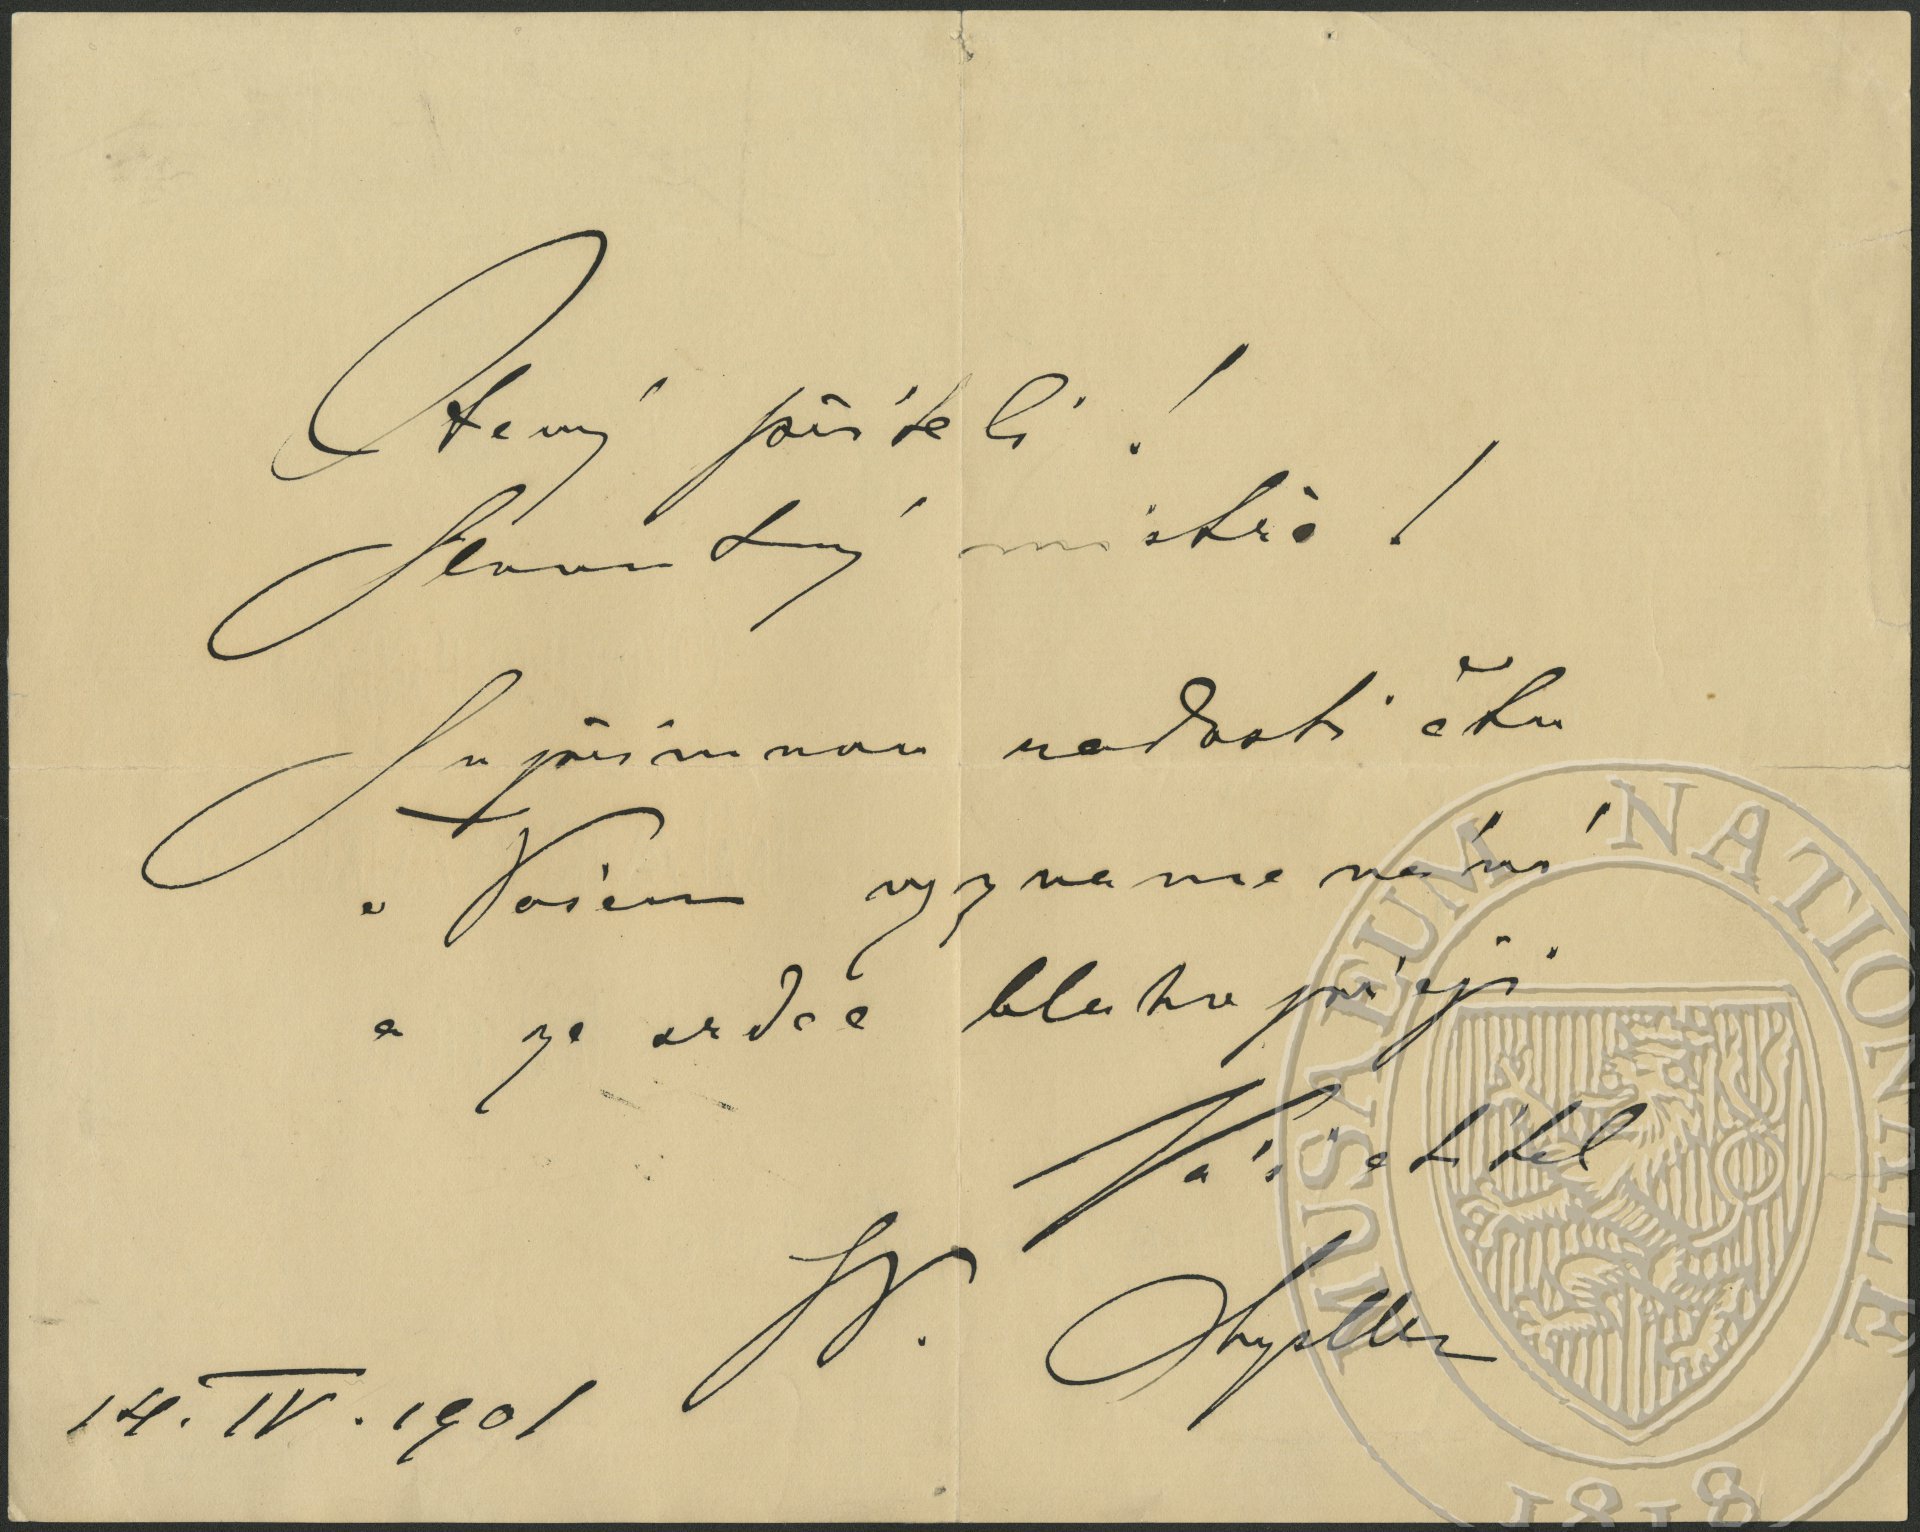 Ctěný příteli!
Slovutný mistře!
S upřímnou radostí čtu
o Vašem vyznamenání
a ze srdce blahopřeji
Váš ctitel
14. IV. 1901
MUSAEUM NATIONALE
1818